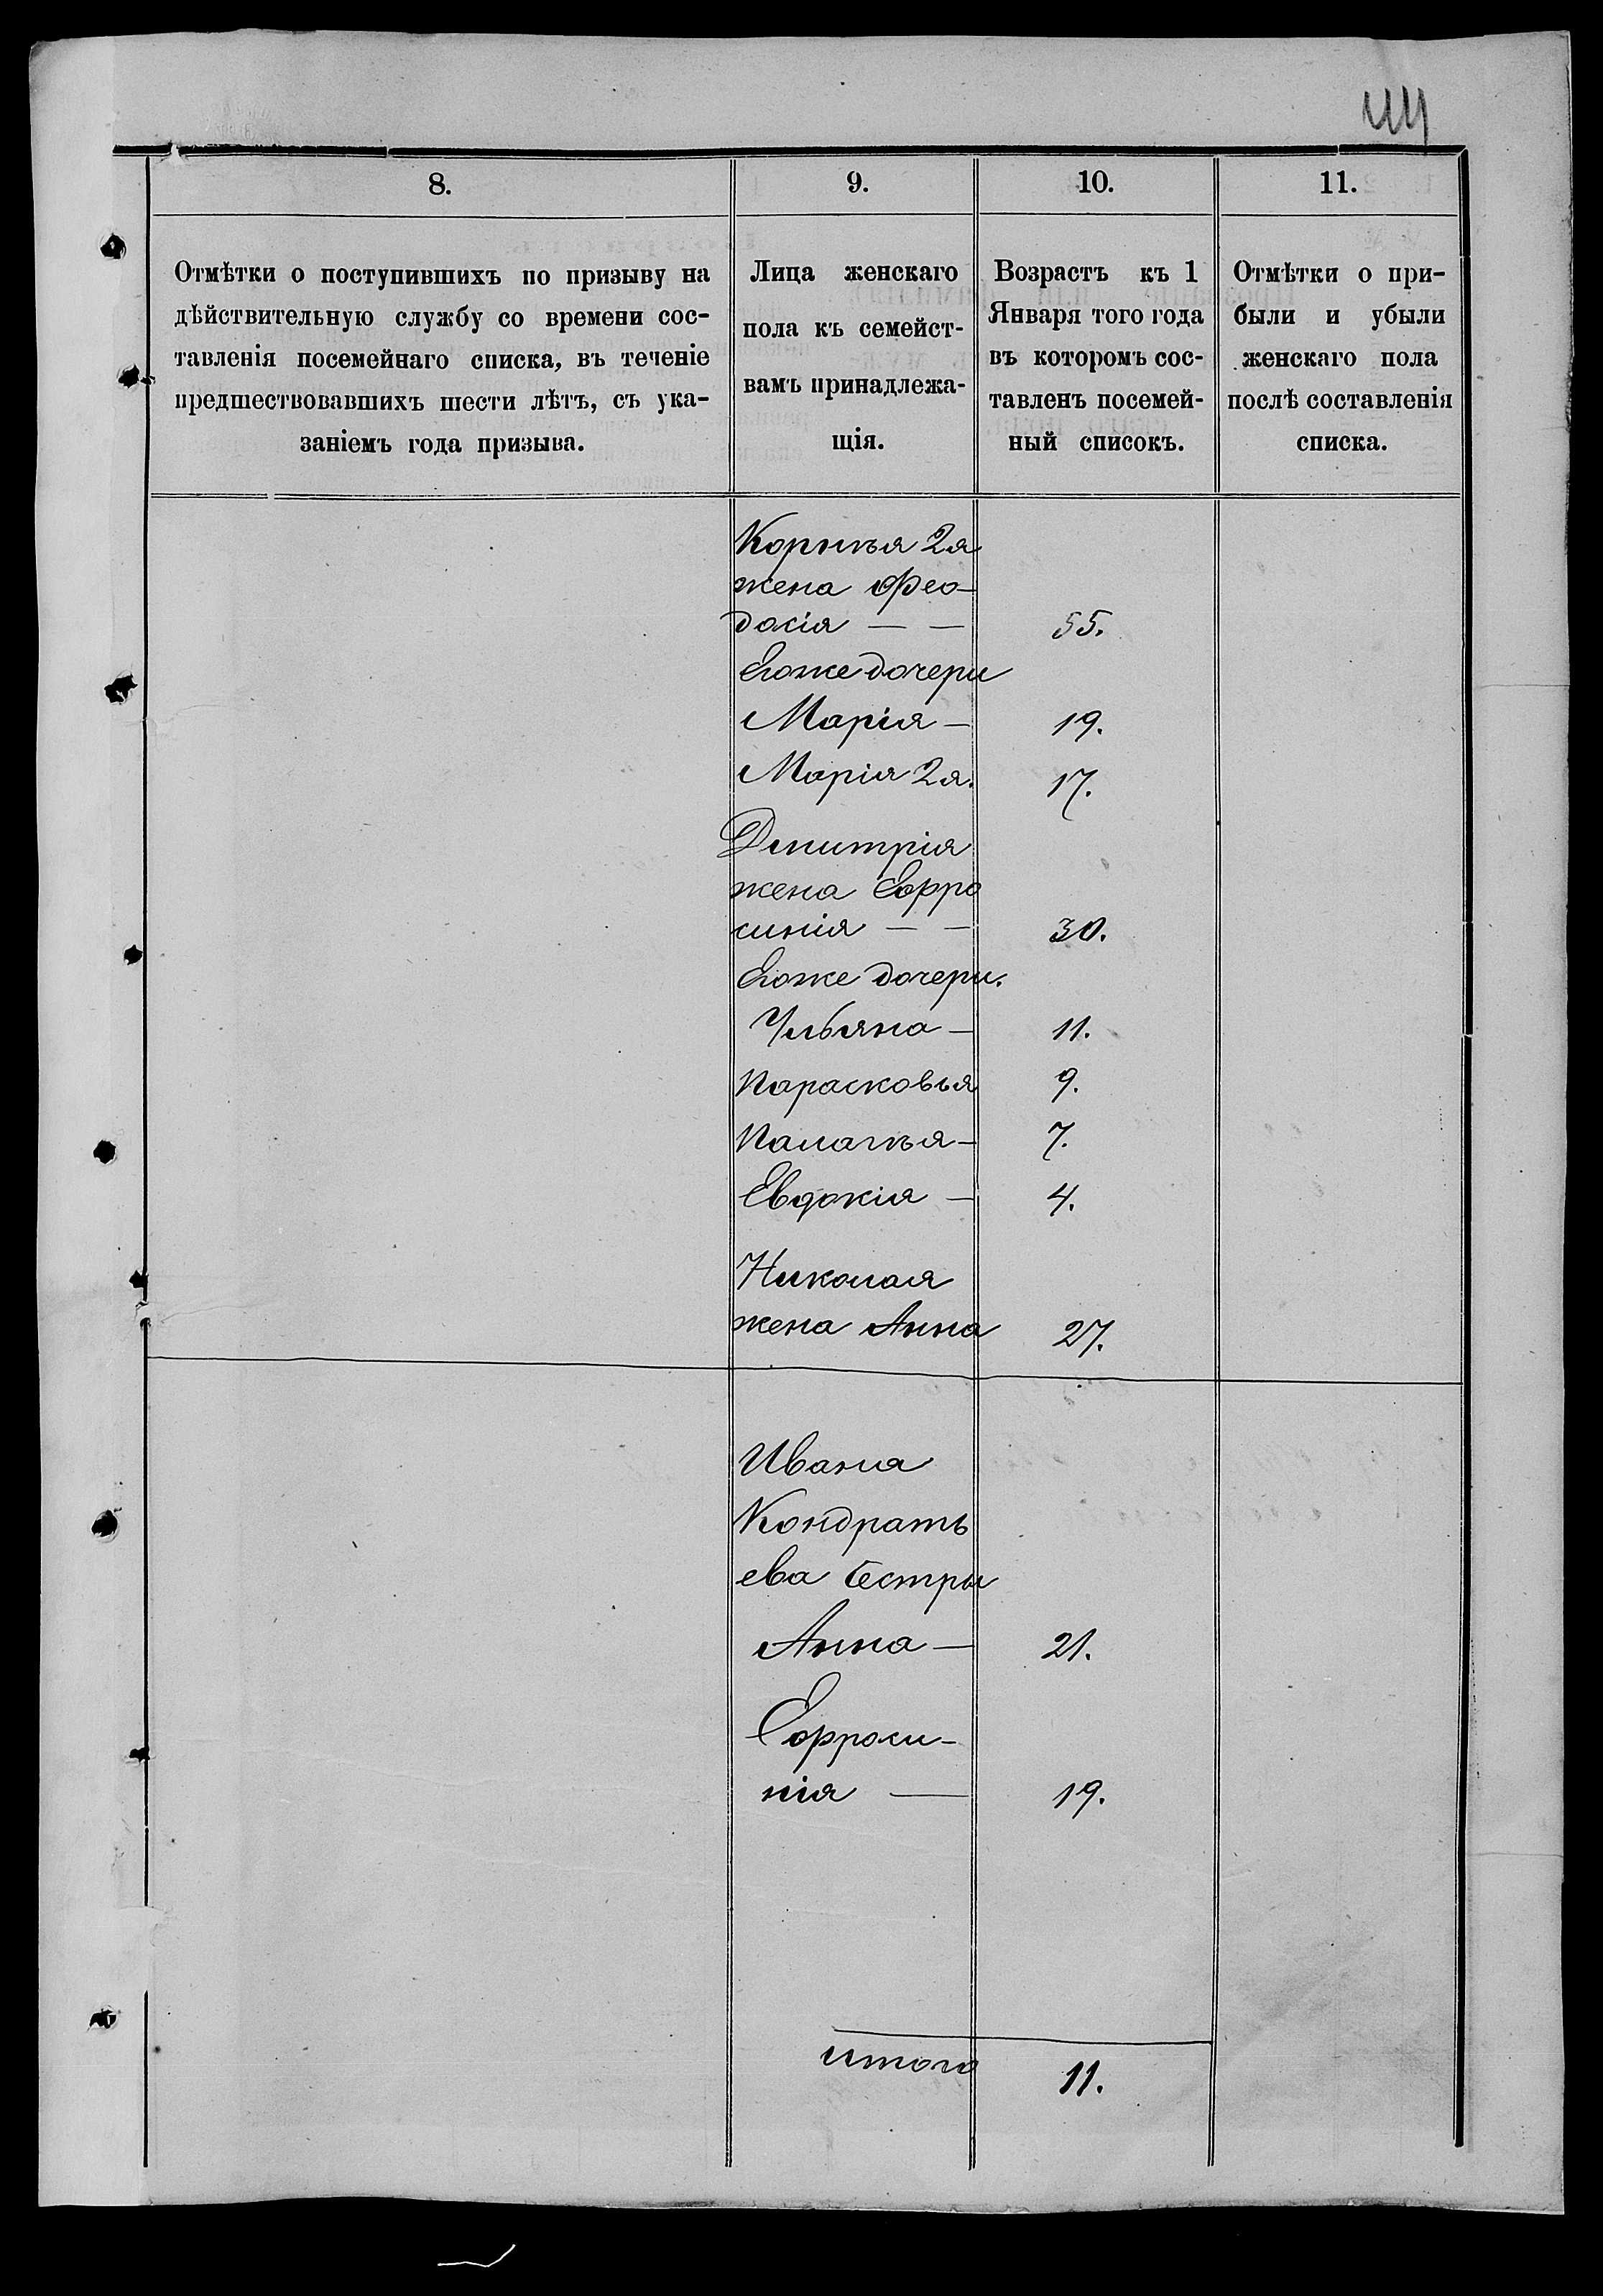 44
8.
9.
10.
11.
Отмѣтки о поступившихъ по призыву на
дѣйствительную службу со времени сос-
тавленія посемейнаго списка, въ теченіе
предшествовавшихъ шести лѣтъ, съ ука-
заніемъ года призыва.
Лица женскаго
пола къ семейст-
вамъ принадлежа-
щія.
Возрастъ къ 1
Января того года
въ которомъ сос-
тавленъ посемей-
ный списокъ.
Отмѣтки о при-
были и убыли
женскаго пола
послѣ составленія
списка.
Корнѣя 2я
жена Фео-
досія — — 55.
Егоже дочери
Марія — 19.
Марія 2я. 17.
Дмитрія
жена Ефро
синія — — 30.
Егоже дочери.
Ульяна — 11.
Парасковья 9.
Палагѣя — 7.
Евдокія — 4.
Николая
жена Анна 27.
Ивана
Кондрать
ева Сестры
Анна — 21.
Ефроси-
нія — 19.
итого 11.